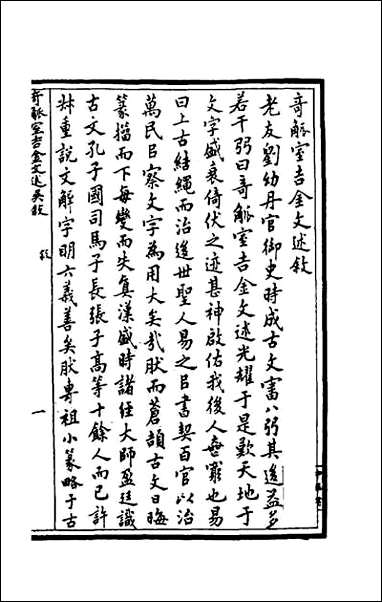 奇觚室吉金文述敘
老友劉幼丹官御史時成古文審八弓其後益多
若干弓曰奇觚室吉金文述光耀于是歎天地于
文字盛衰倚伏之迹甚神啟佑我後人無窮也易
曰上古結繩而治後世聖人易之㠯書契百官以治
萬民㠯察文字為用大矣哉肰而蒼頡古文日晦
篆籀而下每變而失真漢盛時諸經大師盈廷識
古文孔子國司馬子長張子高等十餘人而已許
尗重說文解字明六義善矣肰專祖小篆略于古
奇觚室吉金文述吳敘
敘
一